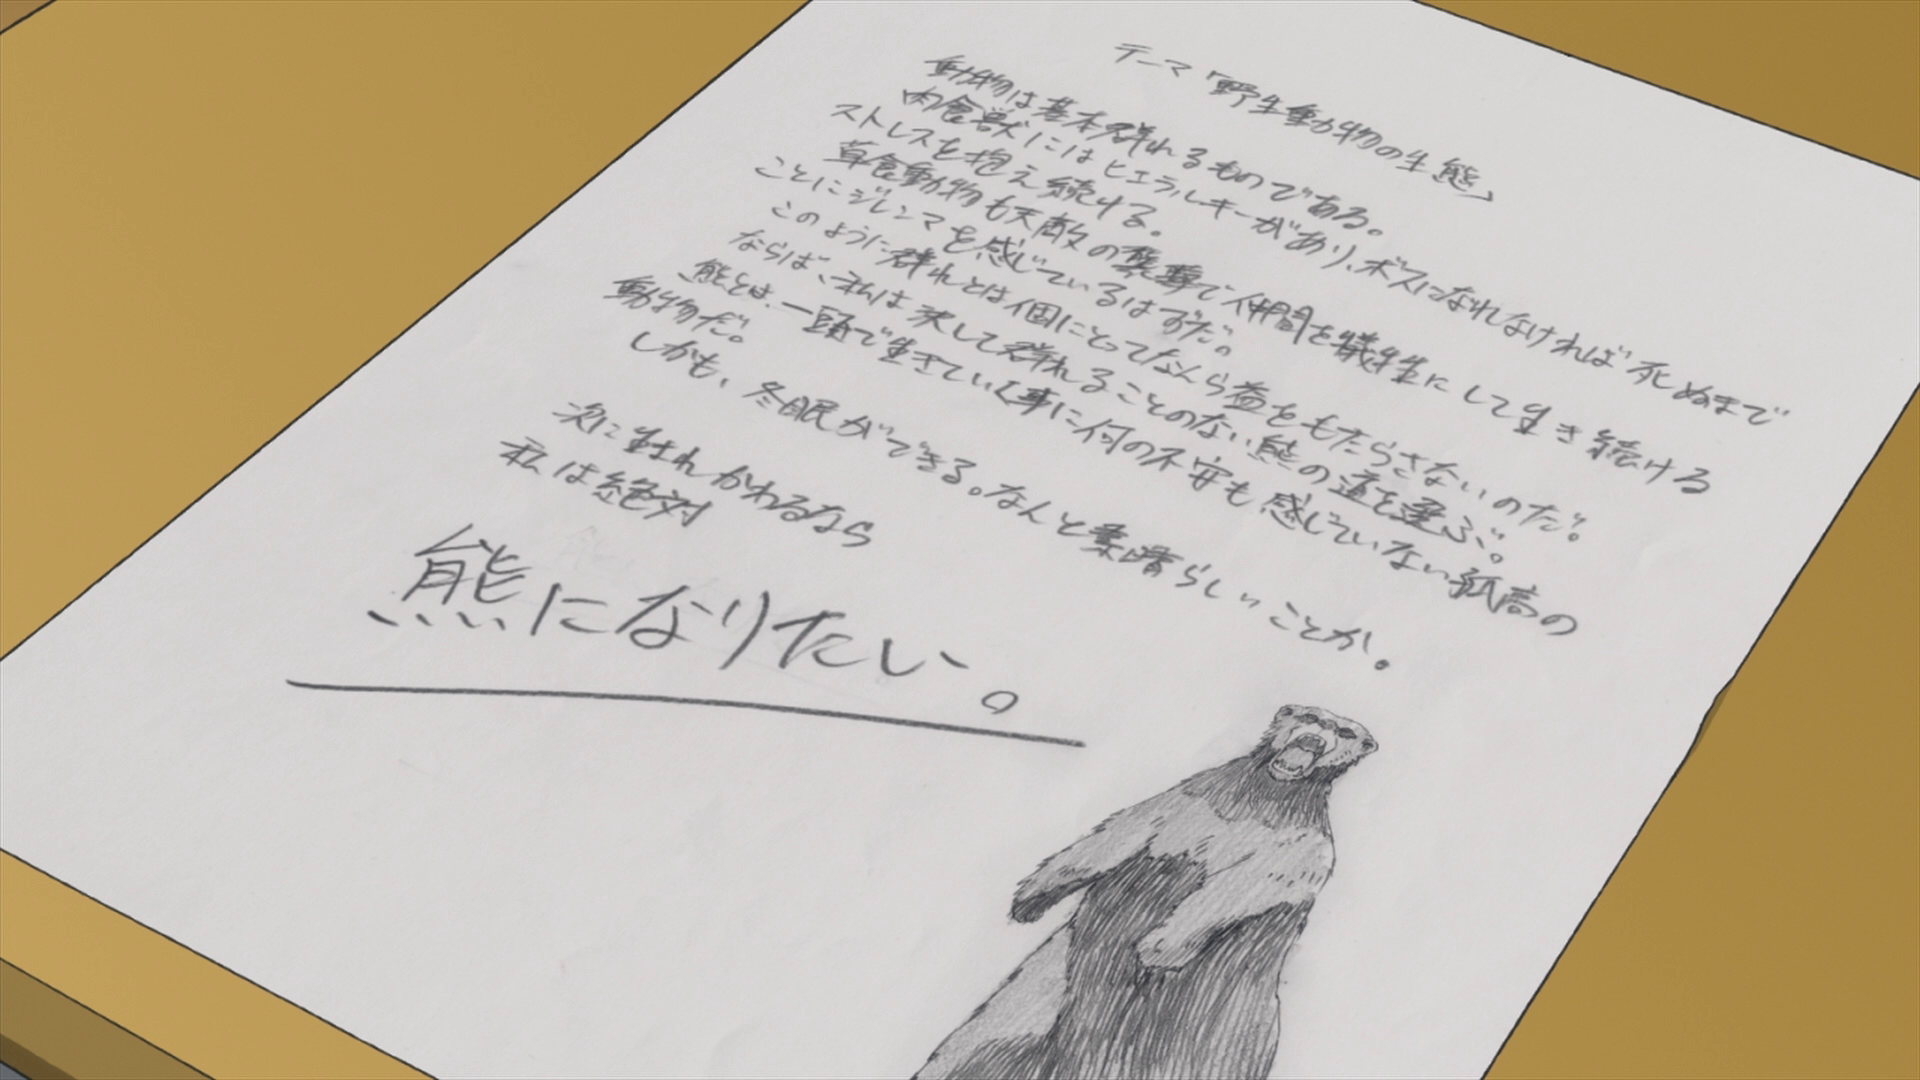 テーマ「野生動物の生態」
動物は基本群れるものである。
肉食獣にはヒエラルキーがあり、ボスになれなければ死ぬまで
ストレスを抱え続ける。
草食動物も天敵の襲撃で仲間を犠牲にして生き続ける
ことにジレンマを感じているはずだ。
このように群れとは個にとってなんら益をもたらさないのだ。
ならば、私は決して群れることのない熊の道を選ぶ。
熊とは、一頭で生きていく事に何の不安も感じていない孤高の
動物だ。
しかも、冬眠ができる。なんと素晴らしいことか。
次に生まれかわるなら
私は絶対
熊になりたい。